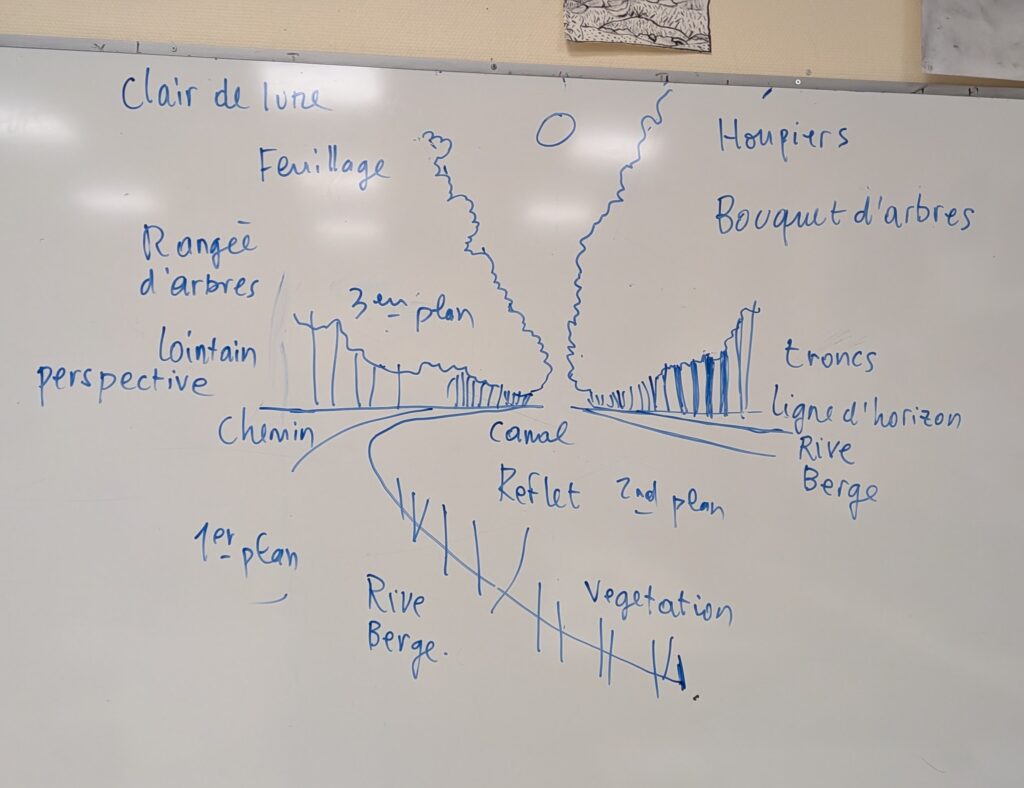 Clair de lune
Feuillage
Houpiers
Bouquet d'arbres
Rangée
d'arbres
3em plan
lointain
perspective
troncs
ligne d'horizon
Chemin
Canal
Rive
Berge
Reflet
2nd plan
1er plan
Rive
Berge.
Vegetation